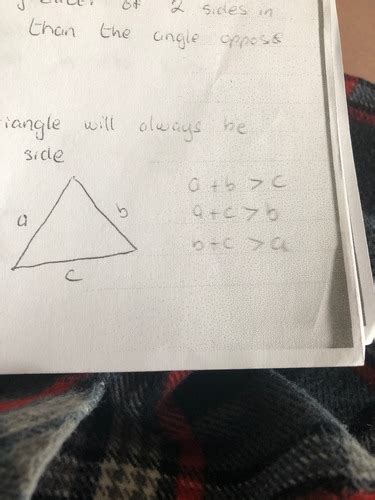 of 2 sides in
than the angle oppose
iangle will always be
side
a
b
c
a + b > c
a + c > b
b + c > a